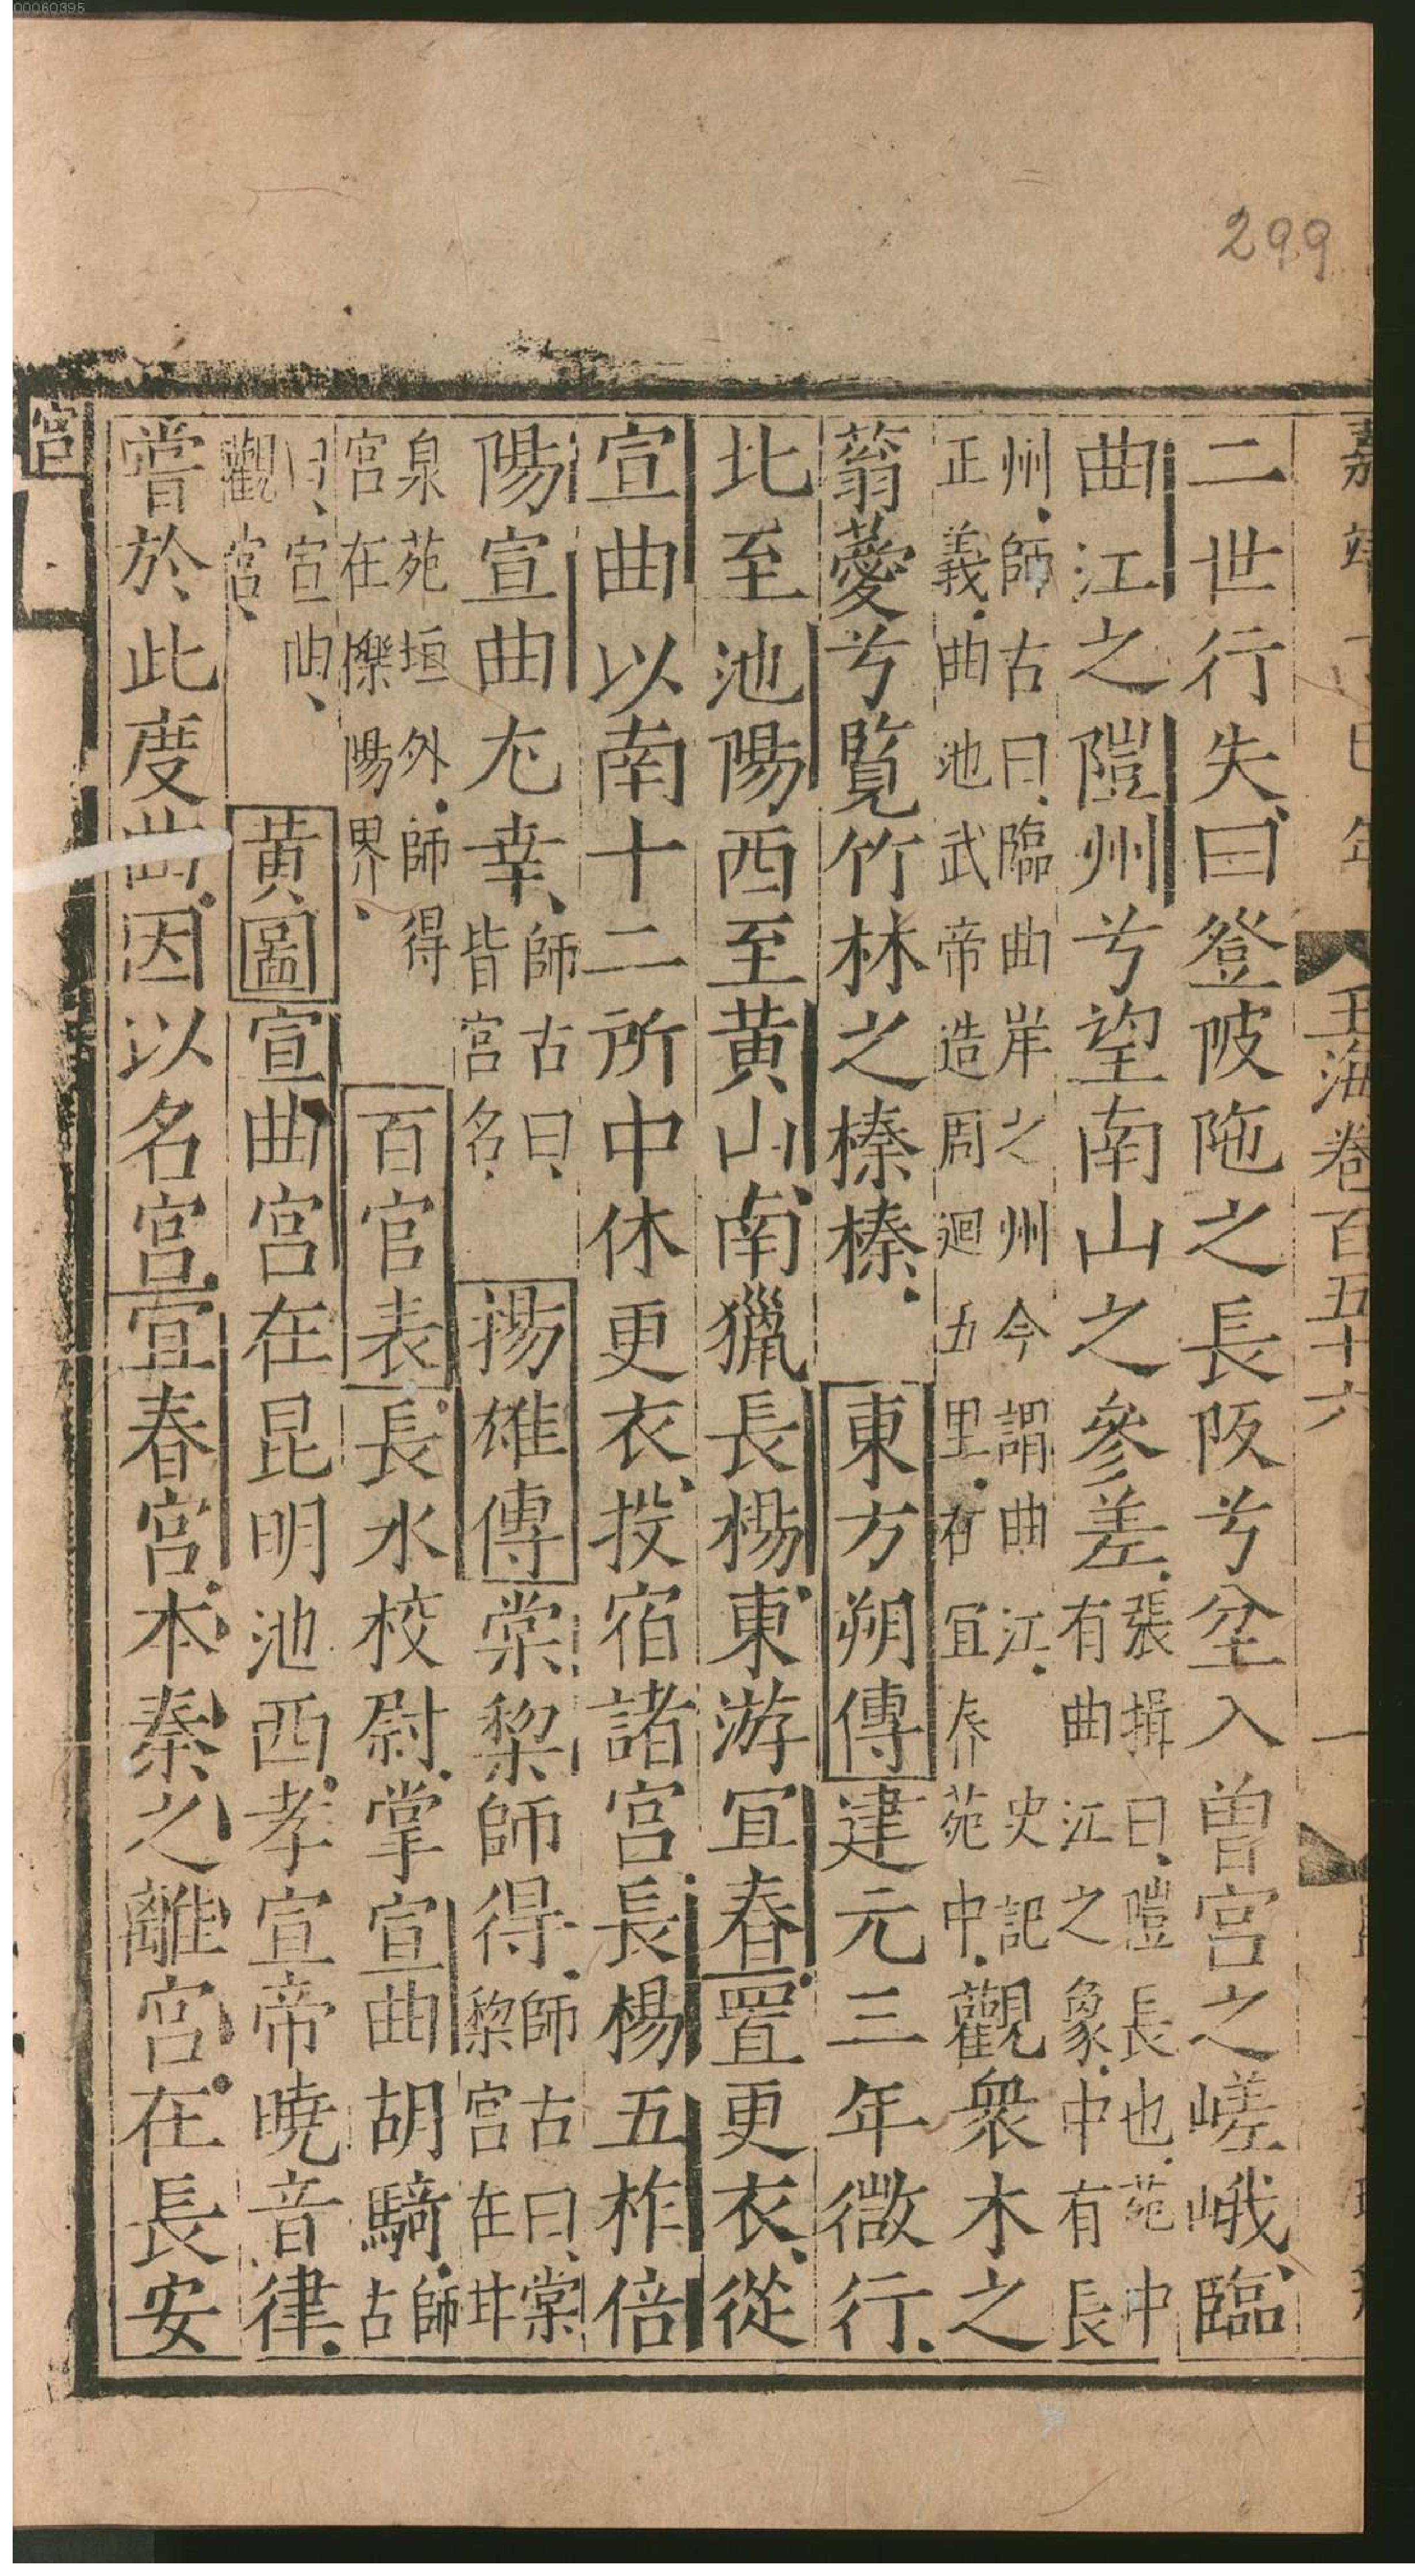 00060395
299
玉海卷百五十六 一
二世行失曰登陂陁之長阪兮坌入曽宫之嵯峨臨
曲江之隑州兮望南山之參差張揖曰隑長也苑中有曲江之象中有長
州師古曰臨曲岸之州今謂曲江 史記正義曲池武帝造周迴五里在冝春苑中觀衆木之
蓊薆兮覧竹林之榛榛 東方朔傳建元三年微行
北至池陽西至黄山南獵長楊東游冝春置更衣從
宣曲以南十二所中休更衣投宿諸宫長楊五柞倍
陽宣曲尤幸師古曰皆宫名 揚雄傳棠黎師得師古曰棠黎宫在甘
泉苑垣外師得宫在櫟陽界 百官表長水校尉掌宣曲胡騎師古
曰宣曲觀宫 黄圖宣曲宫在昆明池西孝宣帝曉音律
嘗於此度曲因以名宫宜春宫本秦之離宫在長安
宫